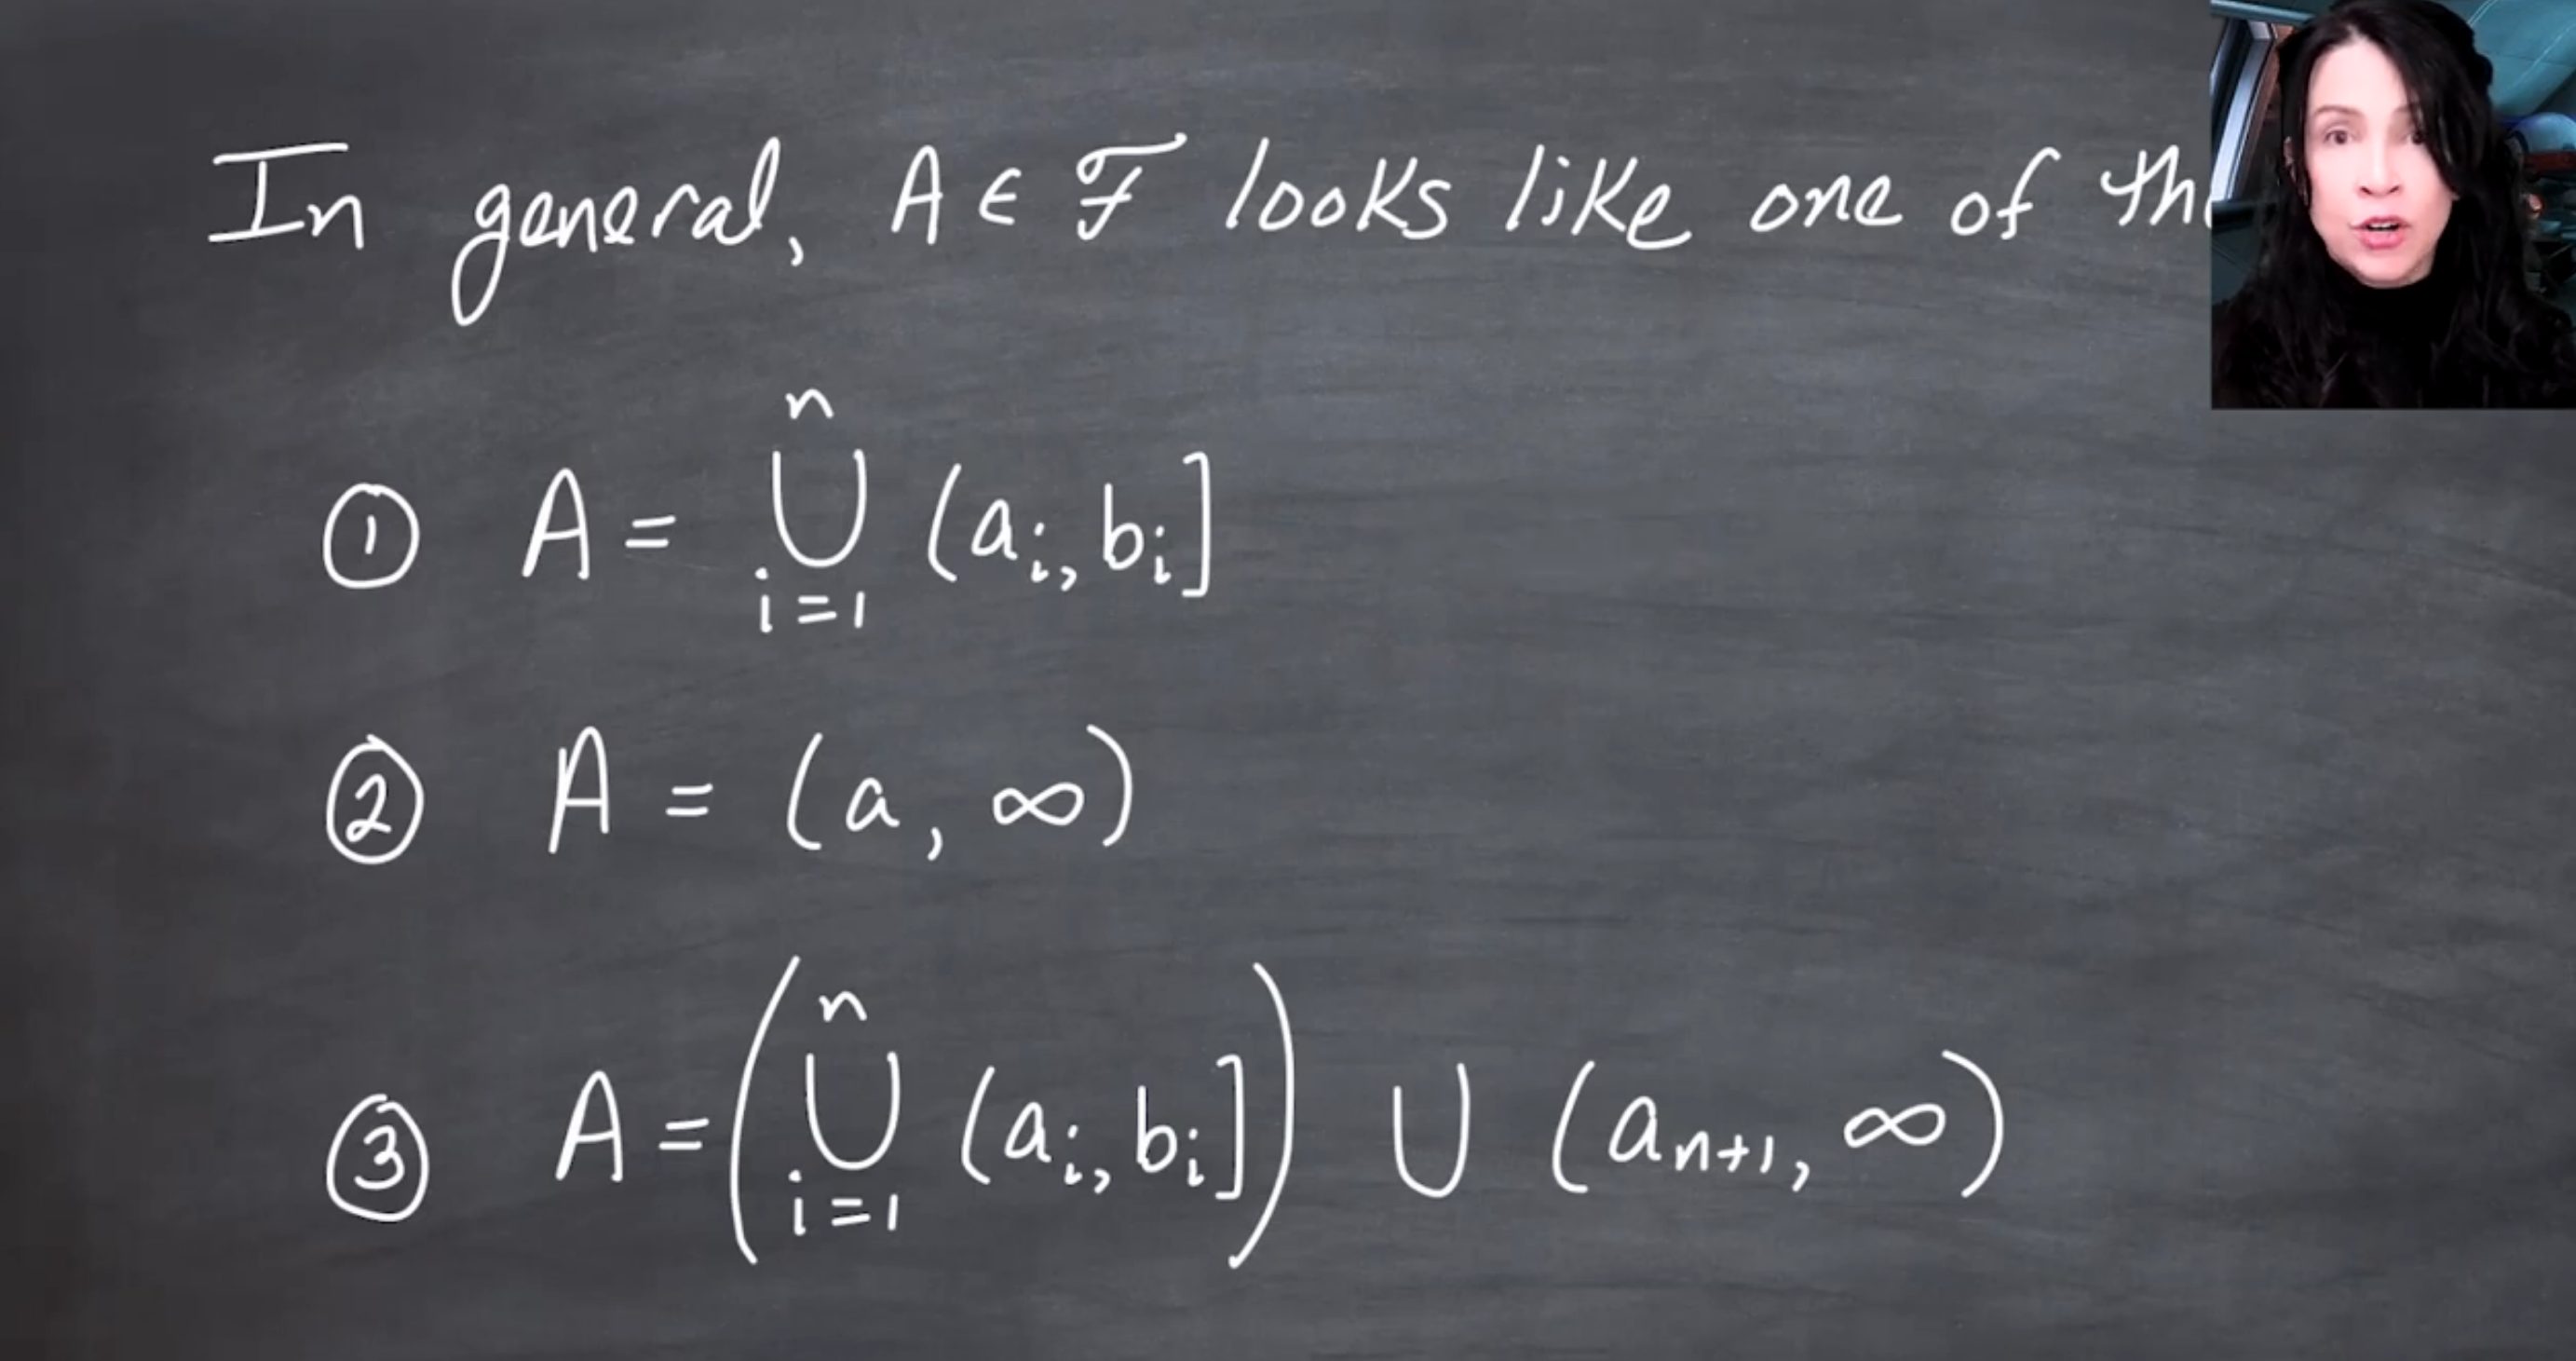 In general, A ∈ ℱ looks like one of
① A = ⋃ᵢ₌₁ⁿ (aᵢ, bᵢ]
② A = (a, ∞)
③ A = (⋃ᵢ₌₁ⁿ (aᵢ, bᵢ]) ∪ (aₙ₊₁, ∞)